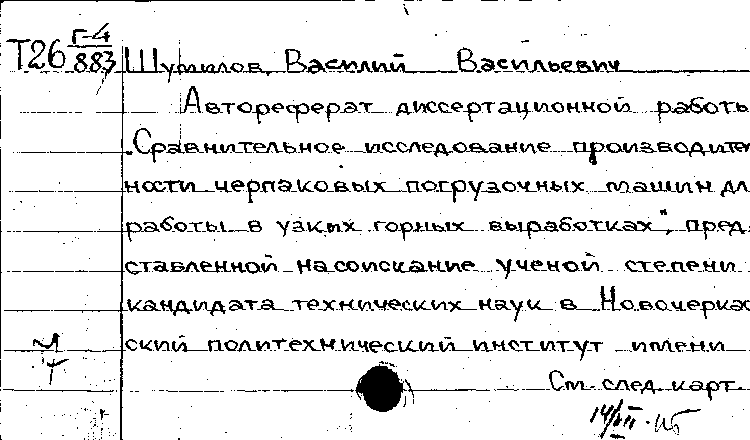 Т26 Г-4/883 Шумилов, Василий Васильевич
Автореферат диссертационной работы
„Сравнительное исследование производитель
ности черпаковых погрузочных машин для
работы в узких горных выработках", пред
ставленной на соискание ученой степени
кандидата технических наук в Новочеркас
ский политехнический институт имени
См. след. карт.